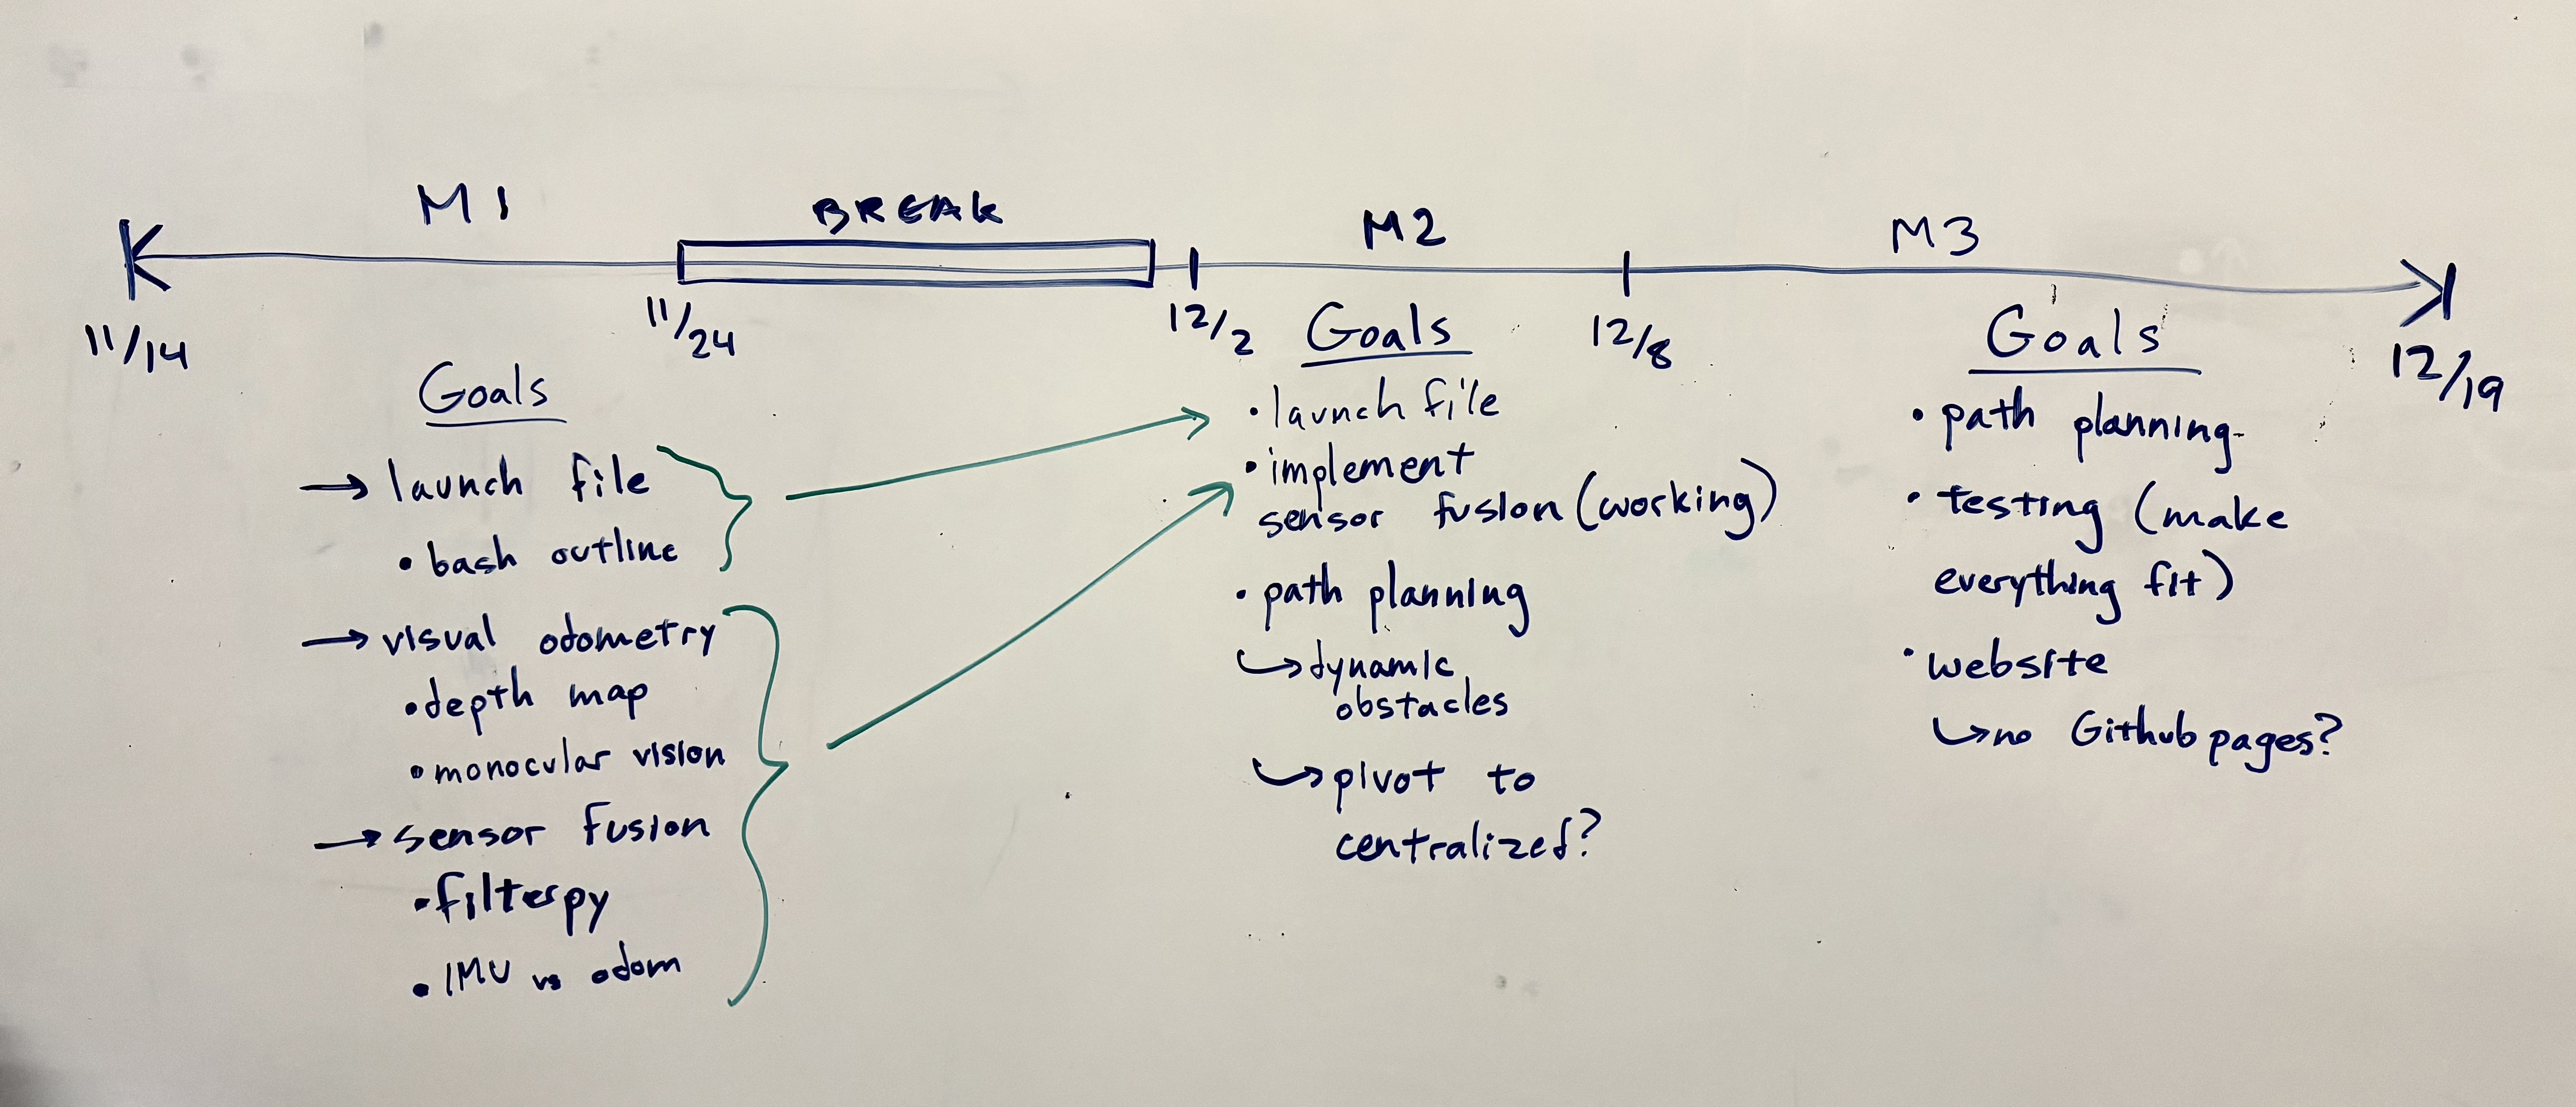 M1
BREAK
M2
M3
11/14
11/24
12/2
12/8
12/19
Goals
→ launch file
• bash outline
→ visual odometry
• depth map
• monocular vision
→ sensor fusion
• filterpy
• IMU vs odom
Goals
• launch file
• implement
sensor fusion (working)
• path planning
↪ dynamic
obstacles
↪ pivot to
centralized?
Goals
• path planning
• testing (make
everything fit)
• website
↪ no Github pages?